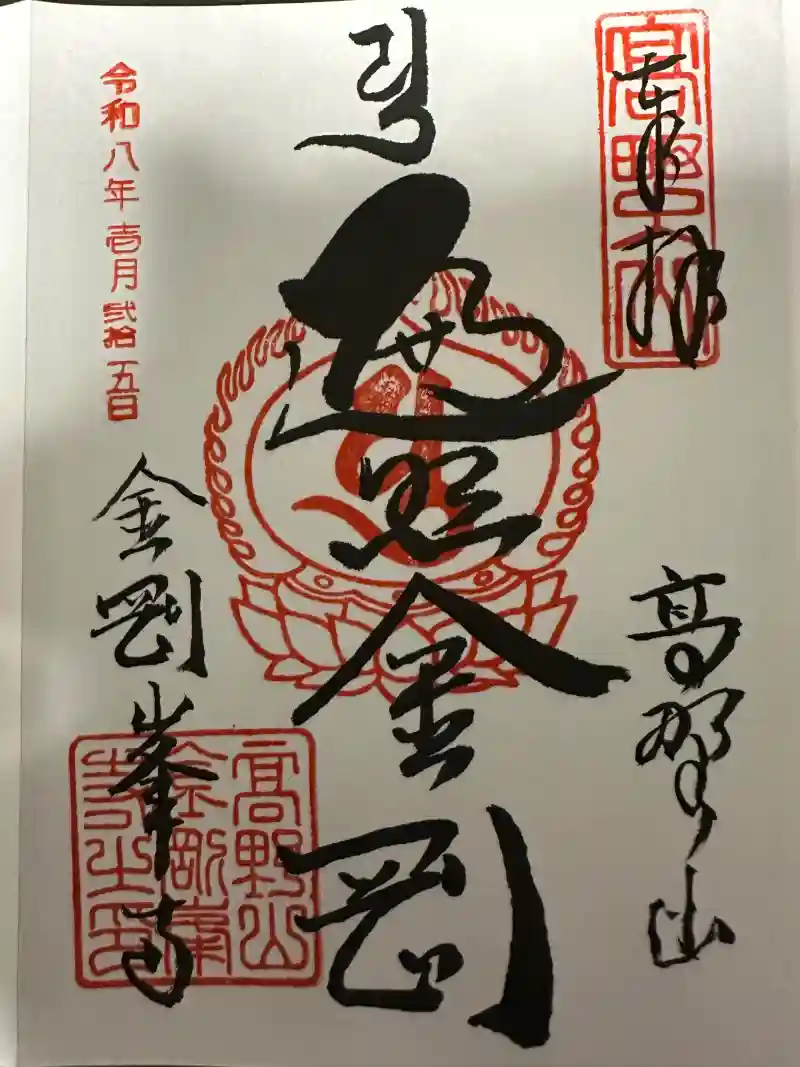 奉拝
高野山
高野山
遍照金剛
高野山
金剛峯
寺之印
令和八年壱月弐拾五日
金剛峯寺